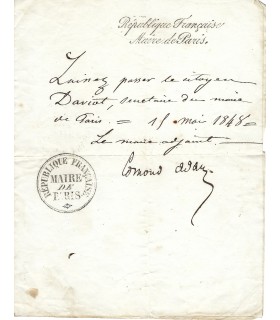 République Française
Mairie de Paris.
Laissez passer le citoyen
Daviot secretaire du maire
de Paris. = 15 mai 1848 =
Le maire adjoint.
Edmond Adam
RÉPUBLIQUE FRANÇAISE
MAIRIE
DE
PARIS